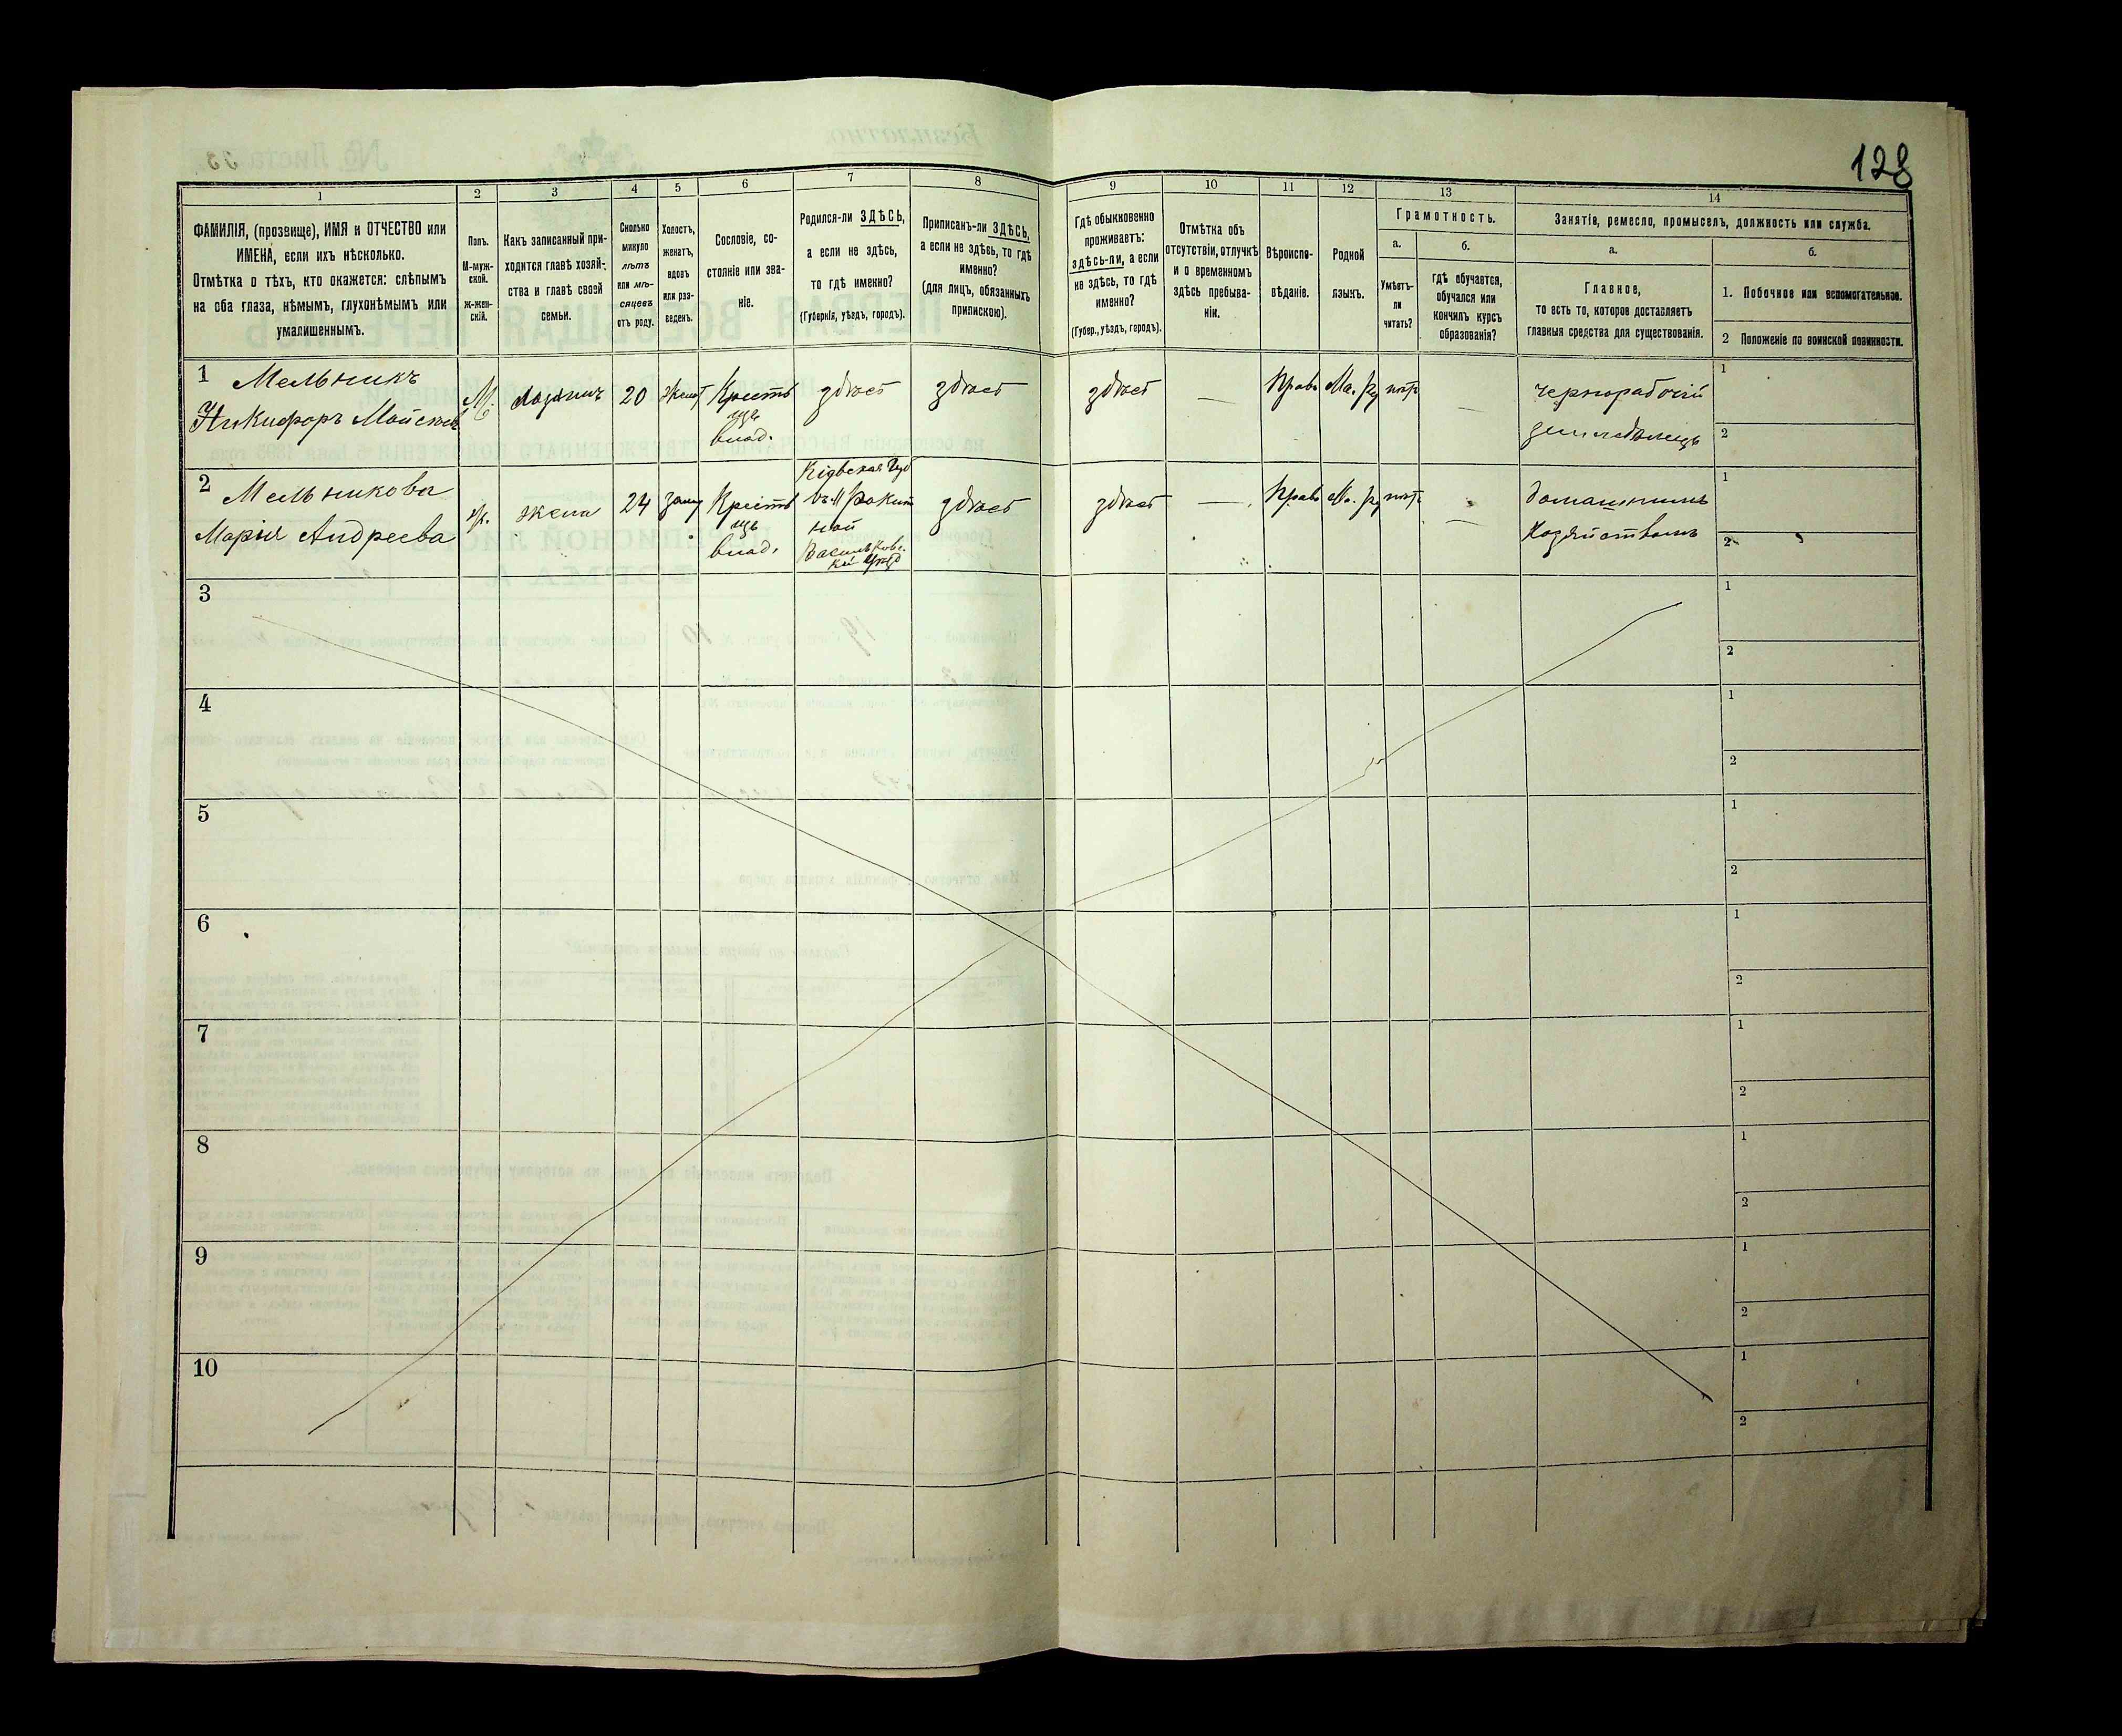 128
1
2
3
4
5
6
7
8
9
10
11
12
13
14
ФАМИЛІЯ, (прозвище), ИМЯ и ОТЧЕСТВО или
ИМЕНА, если ихъ нѣсколько.
Отмѣтка о тѣхъ, кто окажется: слѣпымъ
на оба глаза, нѣмымъ, глухонѣмымъ или
умалишеннымъ.
Полъ.
М-муж-
ской.
ж-жен-
скій.
Какъ записанный при-
ходится главѣ хозяй-
ства и главѣ своей
семьи.
Сколько
минуло
лѣтъ
или мѣ-
сяцевъ
отъ роду.
Холостъ,
женатъ,
вдовъ
или раз-
веденъ.
Сословіе, со-
стояніе или зва-
ніе.
Родился-ли ЗДѢСЬ,
а если не здѣсь,
то гдѣ именно?
(Губернія, уѣздъ, городъ).
Приписанъ-ли ЗДѢСЬ,
а если не здѣсь, то гдѣ
именно?
(для лицъ, обязанныхъ
припискою).
Гдѣ обыкновенно
проживаетъ:
здѣсь-ли, а если
не здѣсь, то гдѣ
именно?
(Губер., уѣздъ, городъ).
Отмѣтка объ
отсутствіи, отлучкѣ
и о временномъ
здѣсь пребыва-
ніи.
Вѣроиспо-
вѣданіе.
Родной
языкъ.
Грамотность.
а.
Умѣетъ-
ли
читать?
б.
Гдѣ обучается,
обучался или
кончилъ курсъ
образованія?
Занятія, ремесло, промыселъ, должность или служба.
а.
Главное,
то есть то, которое доставляетъ
главныя средства для существованія.
б.
1. Побочное или вспомогательное.
2 Положеніе по воинской повинности.
1 Мельникъ
Никифоръ Мойсеевъ
М.
хозяинъ
20
женат
Крестъ
изъ
влад.
здѣсь
здѣсь
здѣсь
—
Прав.
нѣтъ
—
чернорабочій
земледѣлецъ
1
2
2 Мельникова
Марія Андреева
ж.
жена
24
зам
Крестъ
изъ
влад.
Кіевская Губ
въ м Ракит
ной
Васильков.
кій Уѣзд
здѣсь
здѣсь
—
Прав.
нѣтъ
—
домашнимъ
хозяйствомъ
1
2
3
1
2
4
1
2
5
1
2
6
1
2
7
1
2
8
1
2
9
1
2
10
1
2